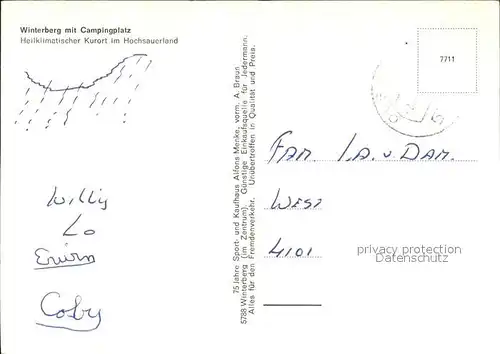 Winterberg mit Campingplatz
Heilklimatischer Kurort im Hochsauerland
Willy
Lo
Erwin
Coby
75 Jahre Sport- und Kaufhaus Alfons Menke, vorm. A. Braun
5788 Winterberg (im Zentrum). Günstige Einkaufsquelle für Jedermann.
Alles für den Fremdenverkehr. Unübertroffen in Qualität und Preis.
7711
FAM. I.A. v. DAM.
WEST
4101
privacy protection